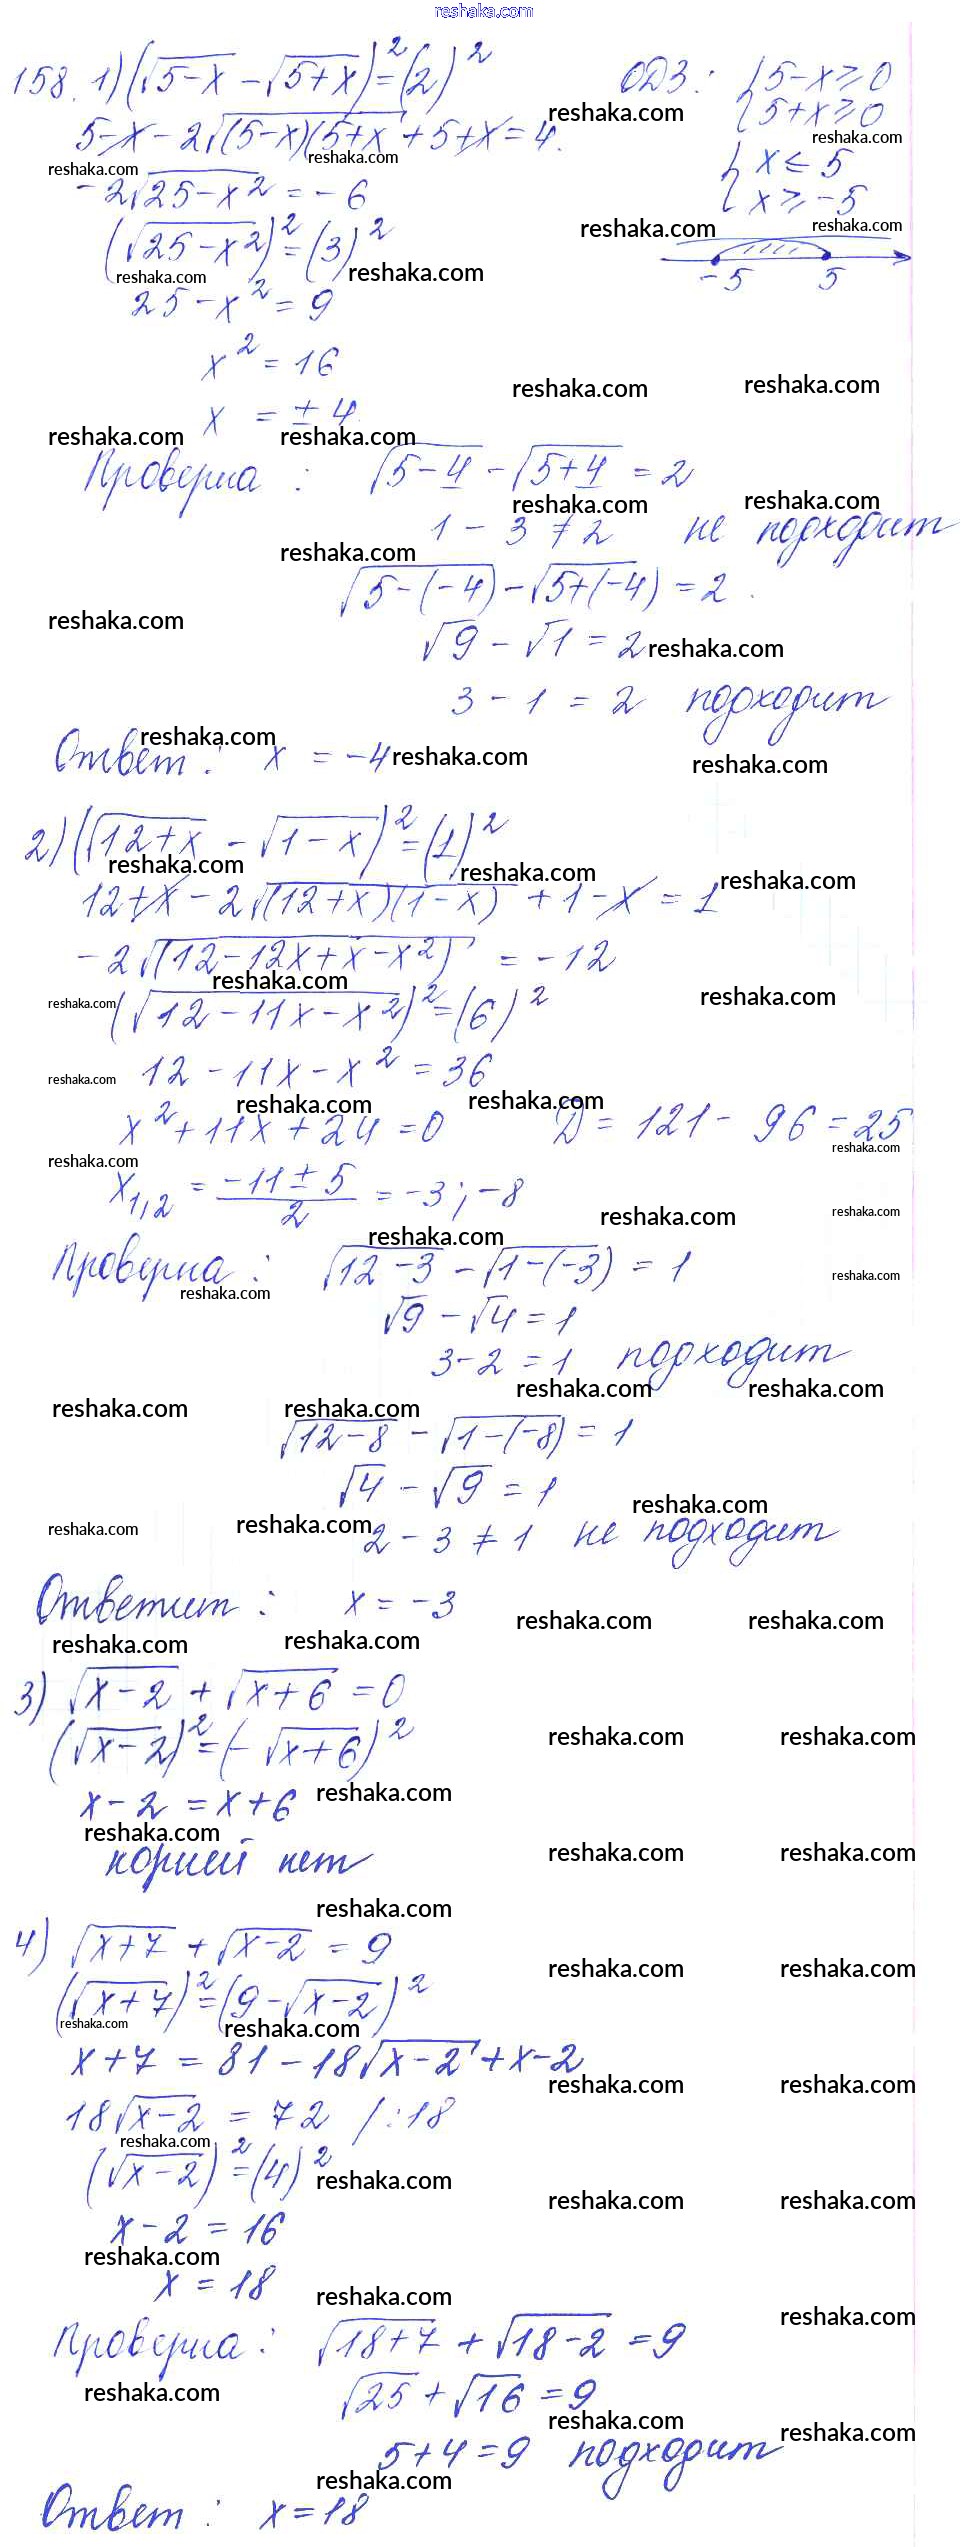 reshaka.com
158. 1) (√5-x - √5+x)² = (2)² ОДЗ: { 5-x ≥ 0
5-x - 2√(5-x)(5+x) + 5+x = 4. { 5+x ≥ 0
-2√25-x² = -6 { x ≤ 5
{ x ≥ -5
(√25-x²)² = (3)²
-5 5
25-x² = 9
x² = 16
x = ± 4
Проверка: √5-4 - √5+4 = 2
1 - 3 ≠ 2 не подходит
√5-(-4) - √5+(-4) = 2
√9 - √1 = 2
3 - 1 = 2 подходит
Ответ: x = -4
2) (√12+x - √1-x)² = (1)²
12+x - 2√(12+x)(1-x) + 1-x = 1
-2√(12-12x+x-x²) = -12
(√12-11x-x²)² = (6)²
12-11x-x² = 36
x²+11x+24 = 0 D = 121 - 96 = 25
x1,2 = -11 ± 5 / 2 = -3; -8
Проверка: √12-3 - √1-(-3) = 1
√9 - √4 = 1
3-2 = 1 подходит
√12-8 - √1-(-8) = 1
√4 - √9 = 1
2 - 3 ≠ 1 не подходит
Ответит: x = -3
3) √x-2 + √x+6 = 0
(√x-2)² = (-√x+6)²
x-2 = x+6
корней нет
4) √x+7 + √x-2 = 9
(√x+7)² = (9-√x-2)²
x+7 = 81 - 18√x-2 + x-2
18√x-2 = 72 /:18
(√x-2)² = (4)²
x-2 = 16
x = 18
Проверка: √18+7 + √18-2 = 9
√25 + √16 = 9
5+4 = 9 подходит
Ответ: x = 18